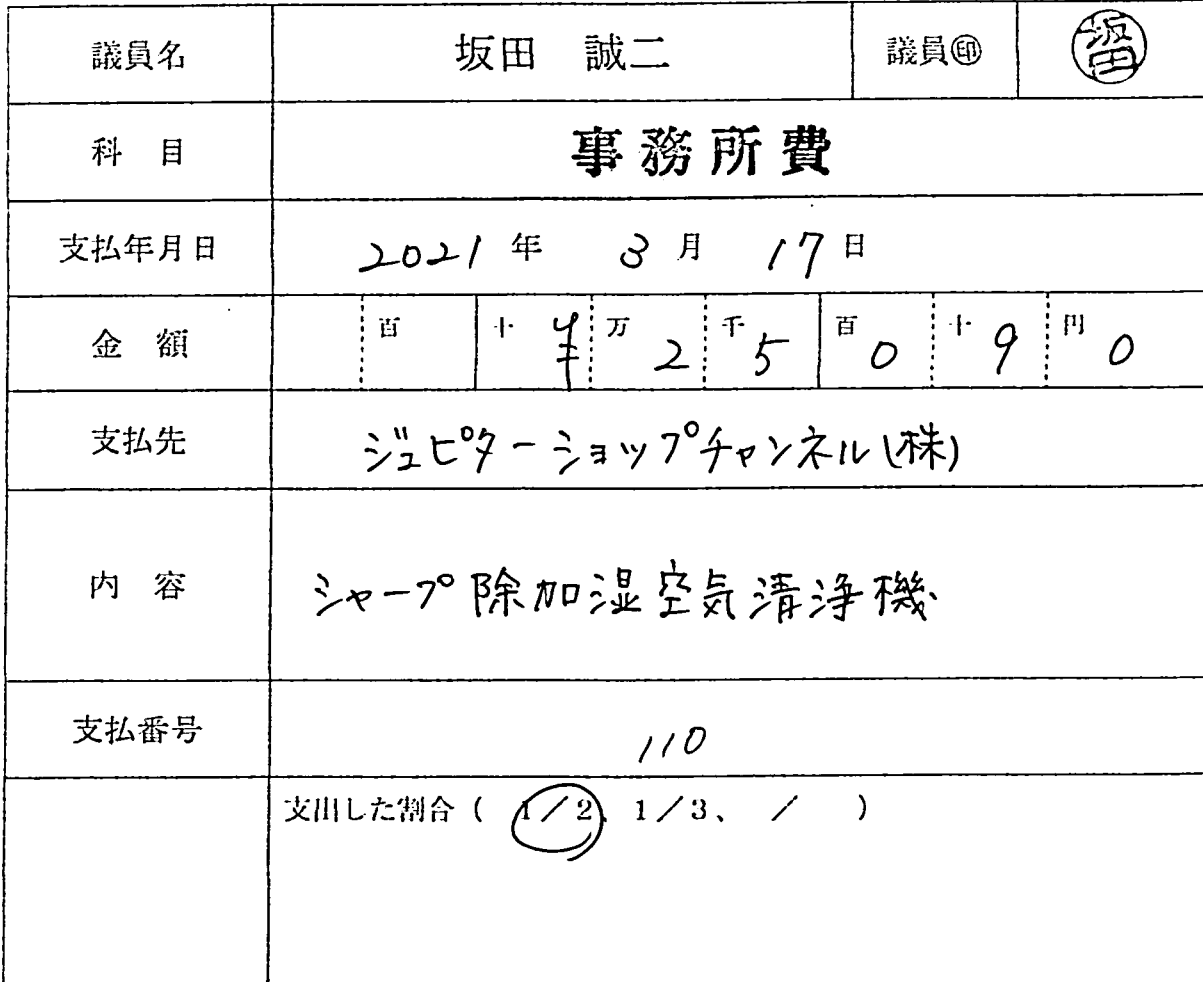 議員名 坂田 誠二 議員㊞ 坂田
科 目 事務所費
支払年月日 2021年 3月 17日
金 額 百 十 ¥ 万 2 千 5 百 0 十 9 円 0
支払先 ジュピターショップチャンネル(株)
内 容 シャープ除加湿空気清浄機
支払番号 110
支出した割合( 1/2、1/3、 / )